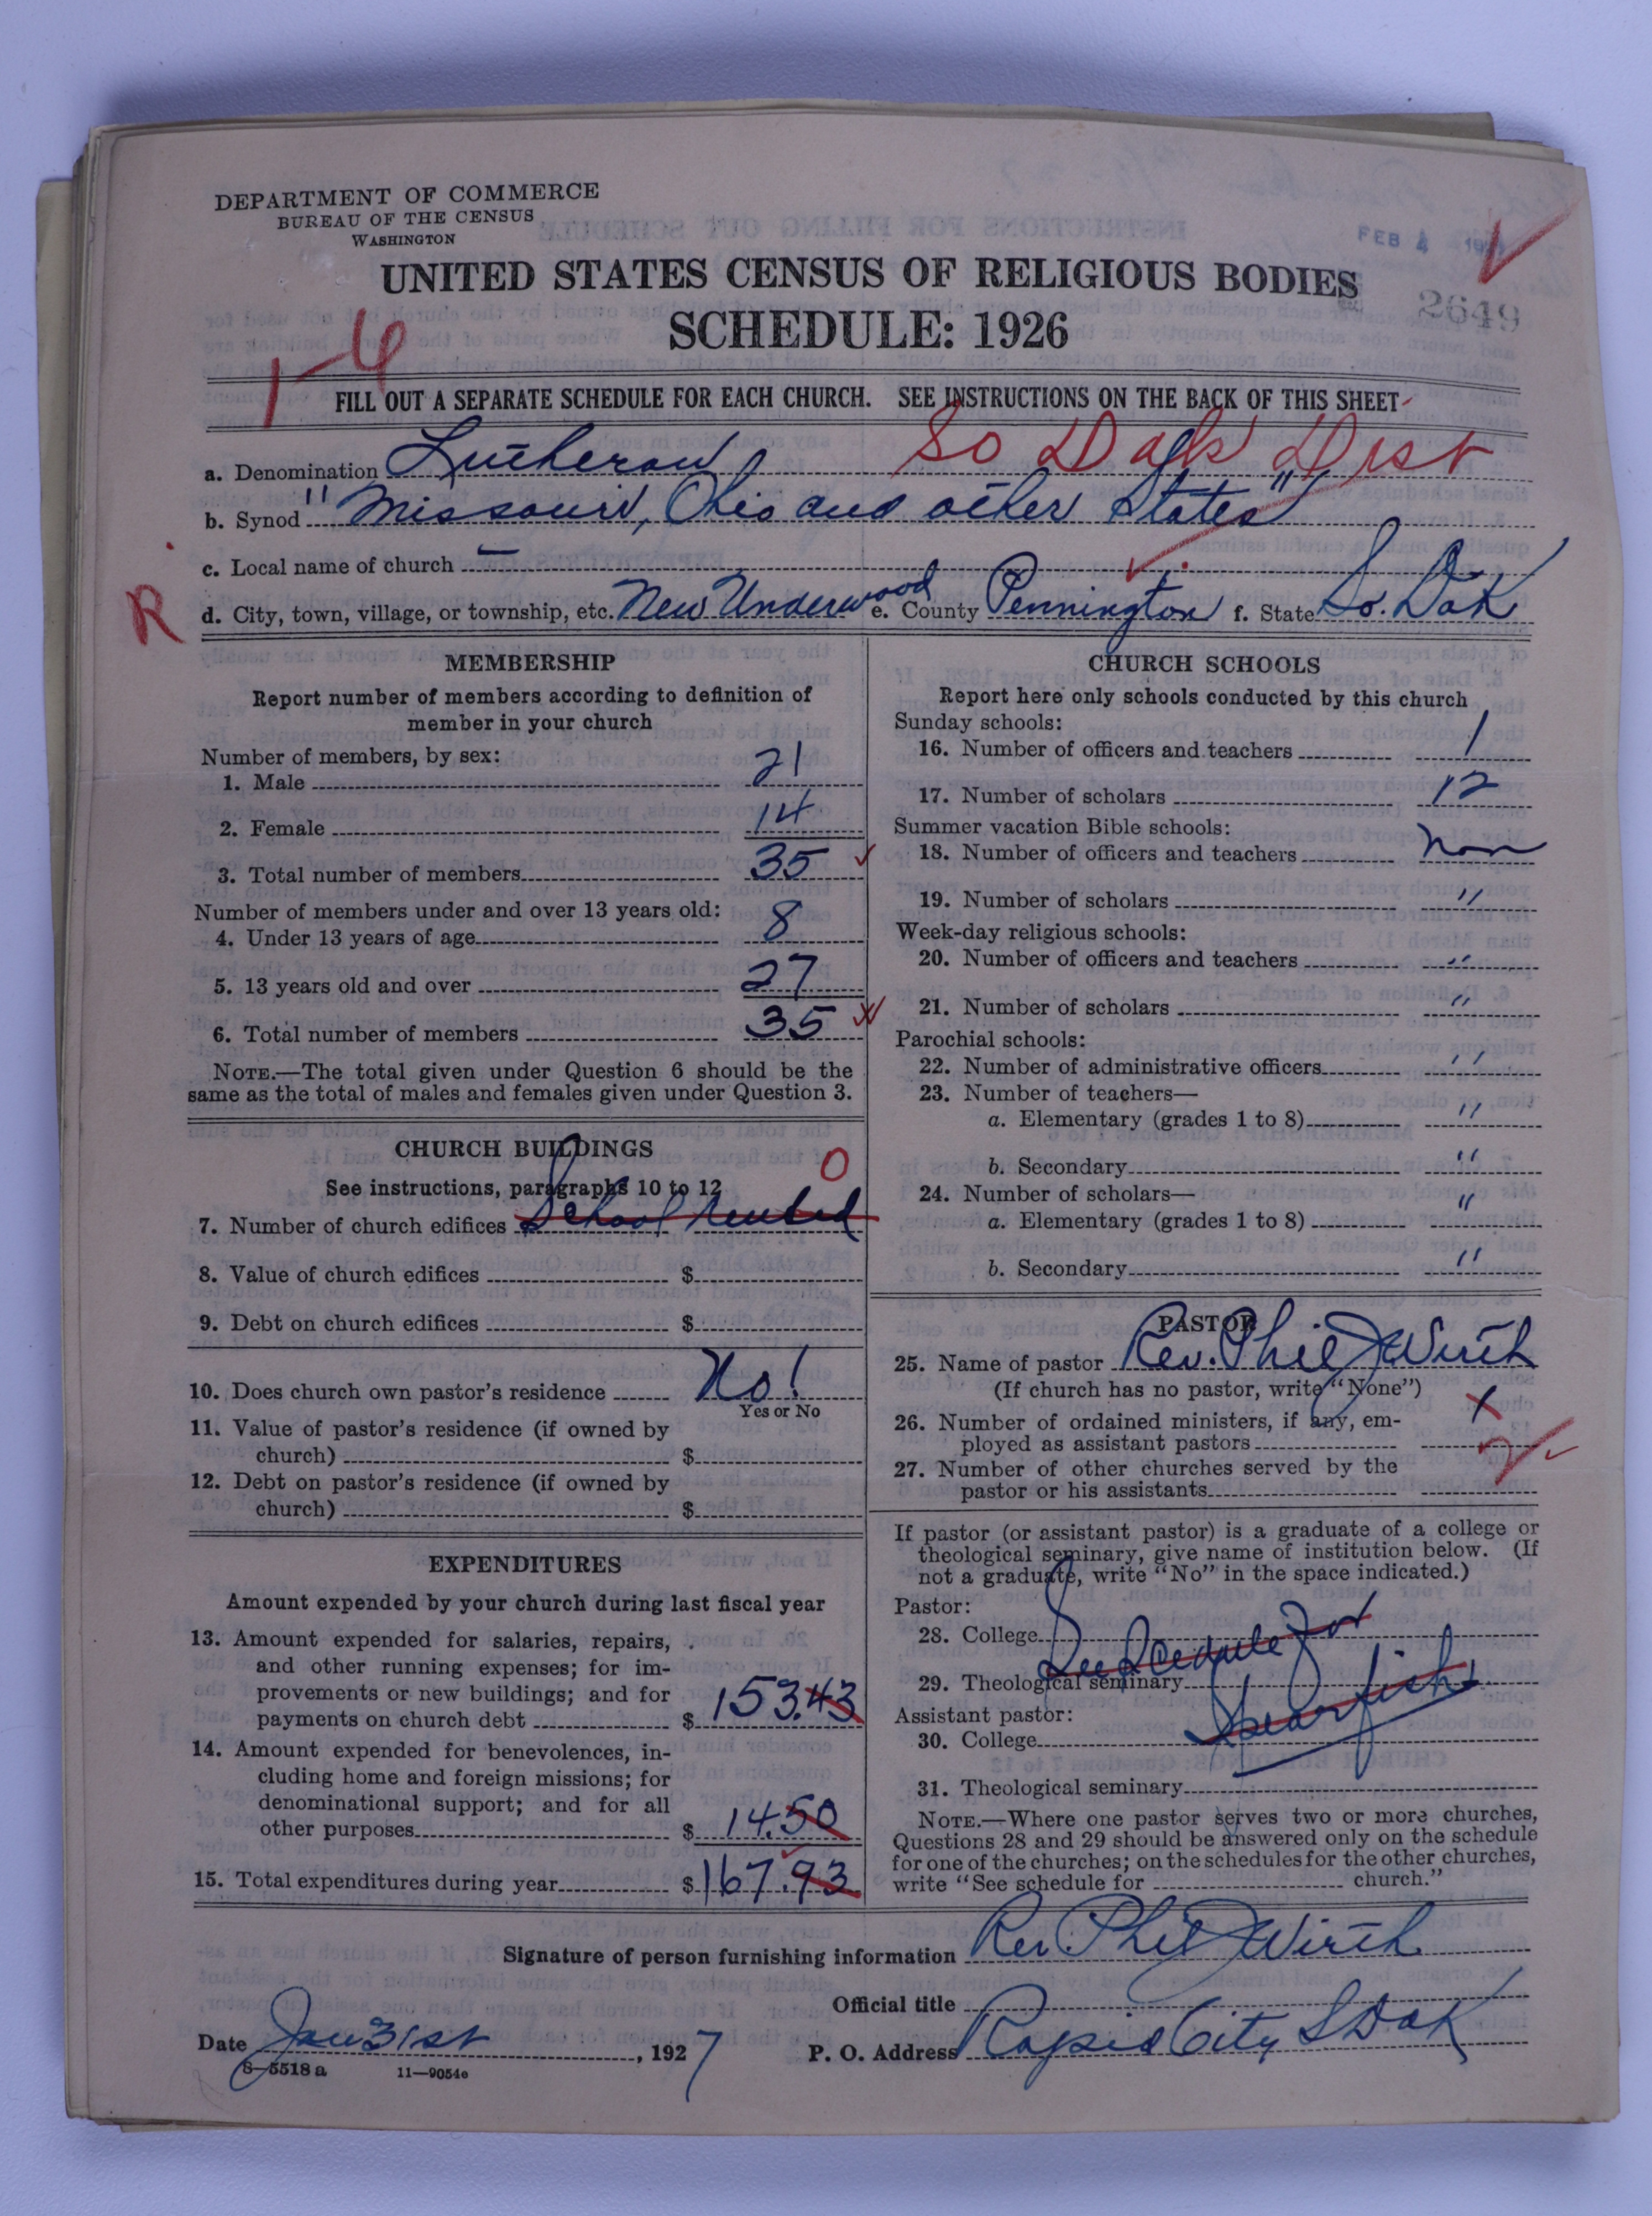 DEPARTMENT OF COMMERCE
BUREAU OF THE CENSUS
WASHINGTON
FEB 4
UNITED STATES CENSUS OF RELIGIOUS BODIES
2649
SCHEDULE: 1926
1-6
FILL OUT A SEPARATE SCHEDULE FOR EACH CHURCH. SEE INSTRUCTIONS ON THE BACK OF THIS SHEET
So Dak Dist
a. Denomination Lutheran
b. Synod "Missouri, Ohio and other States"
c. Local name of church —
R
d. City, town, village, or township, etc. New Underwood e. County Pennington f. State So. Dak
MEMBERSHIP
Report number of members according to definition of
member in your church
Number of members, by sex:
1. Male 21
2. Female 14
3. Total number of members 35
Number of members under and over 13 years old:
4. Under 13 years of age 8
5. 13 years old and over 27
6. Total number of members 35
NOTE.—The total given under Question 6 should be the
same as the total of males and females given under Question 3.
CHURCH BUILDINGS
See instructions, paragraphs 10 to 12
0
7. Number of church edifices School rented
8. Value of church edifices $
9. Debt on church edifices $
10. Does church own pastor's residence No!
Yes or No
11. Value of pastor's residence (if owned by
church) $
12. Debt on pastor's residence (if owned by
church) $
EXPENDITURES
Amount expended by your church during last fiscal year
13. Amount expended for salaries, repairs,
and other running expenses; for im-
provements or new buildings; and for
payments on church debt $ 153.43
14. Amount expended for benevolences, in-
cluding home and foreign missions; for
denominational support; and for all
other purposes $ 14.50
15. Total expenditures during year $ 167.93
CHURCH SCHOOLS
Report here only schools conducted by this church
Sunday schools:
16. Number of officers and teachers 1
17. Number of scholars 12
Summer vacation Bible schools:
18. Number of officers and teachers non
19. Number of scholars "
Week-day religious schools:
20. Number of officers and teachers "
21. Number of scholars "
Parochial schools:
22. Number of administrative officers "
23. Number of teachers—
a. Elementary (grades 1 to 8) "
b. Secondary "
24. Number of scholars—
a. Elementary (grades 1 to 8) "
b. Secondary "
PASTOR
25. Name of pastor Rev. Phil J Wirth
(If church has no pastor, write "None")
26. Number of ordained ministers, if any, em-
ployed as assistant pastors
27. Number of other churches served by the
pastor or his assistants 2
If pastor (or assistant pastor) is a graduate of a college or
theological seminary, give name of institution below. (If
not a graduate, write "No" in the space indicated.)
Pastor:
28. College See Scedule for
29. Theological seminary
Spearfish
Assistant pastor:
30. College
31. Theological seminary
NOTE.—Where one pastor serves two or more churches,
Questions 28 and 29 should be answered only on the schedule
for one of the churches; on the schedules for the other churches,
write "See schedule for church."
Signature of person furnishing information Rev Phil J Wirth
Official title
Date Jan 31st, 1927
P. O. Address Rapid City S Dak
8—5518 a 11—9054e